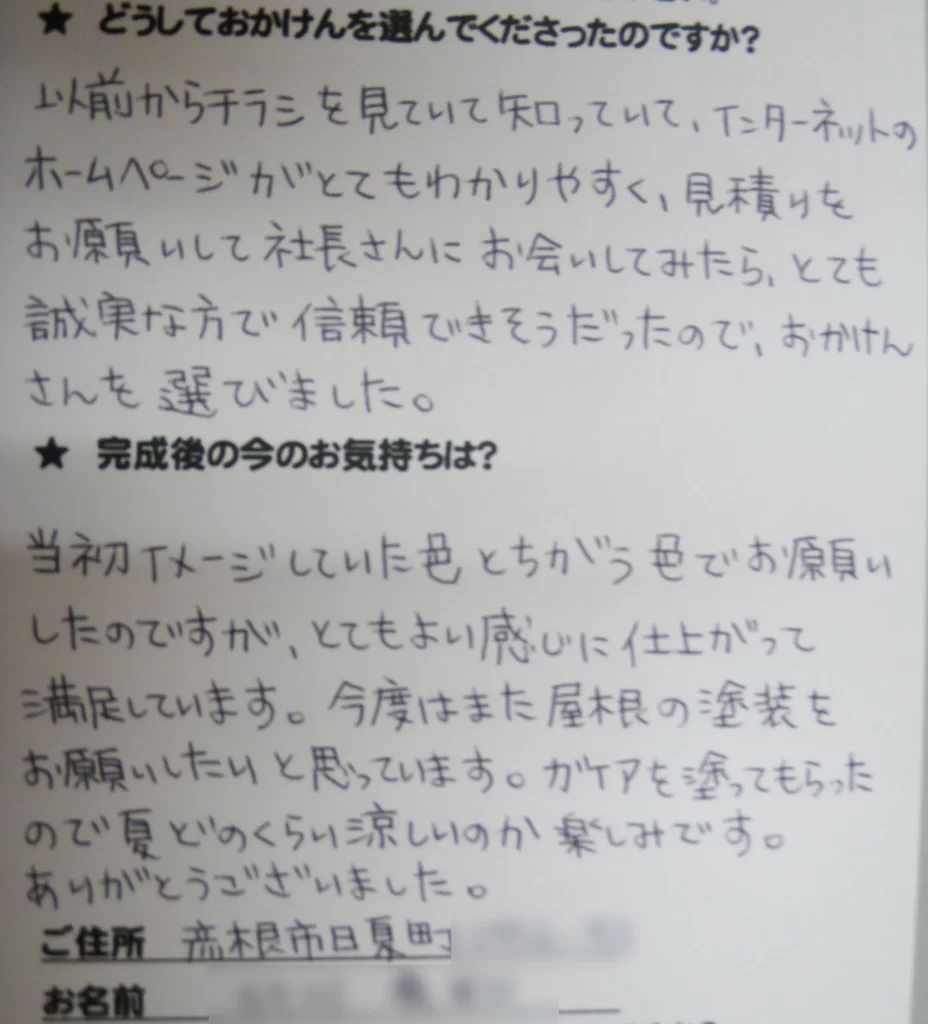 ★ どうしておかけんを選んでくださったのですか?
以前からチラシを見ていて知っていて、インターネットの
ホームページがとてもわかりやすく、見積りを
お願いして社長さんにお会いしてみたら、とても
誠実な方で信頼できそうだったので、おかけん
さんを選びました。
★ 完成後の今のお気持ちは?
当初イメージしていた色とちがう色でお願い
したのですが、とてもよい感じに仕上がって
満足しています。今度はまた屋根の塗装を
お願いしたいと思っています。ガイアを塗ってもらった
ので夏どのくらい涼しいのか楽しみです。
ありがとうございました。
ご住所 彦根市日夏町
お名前